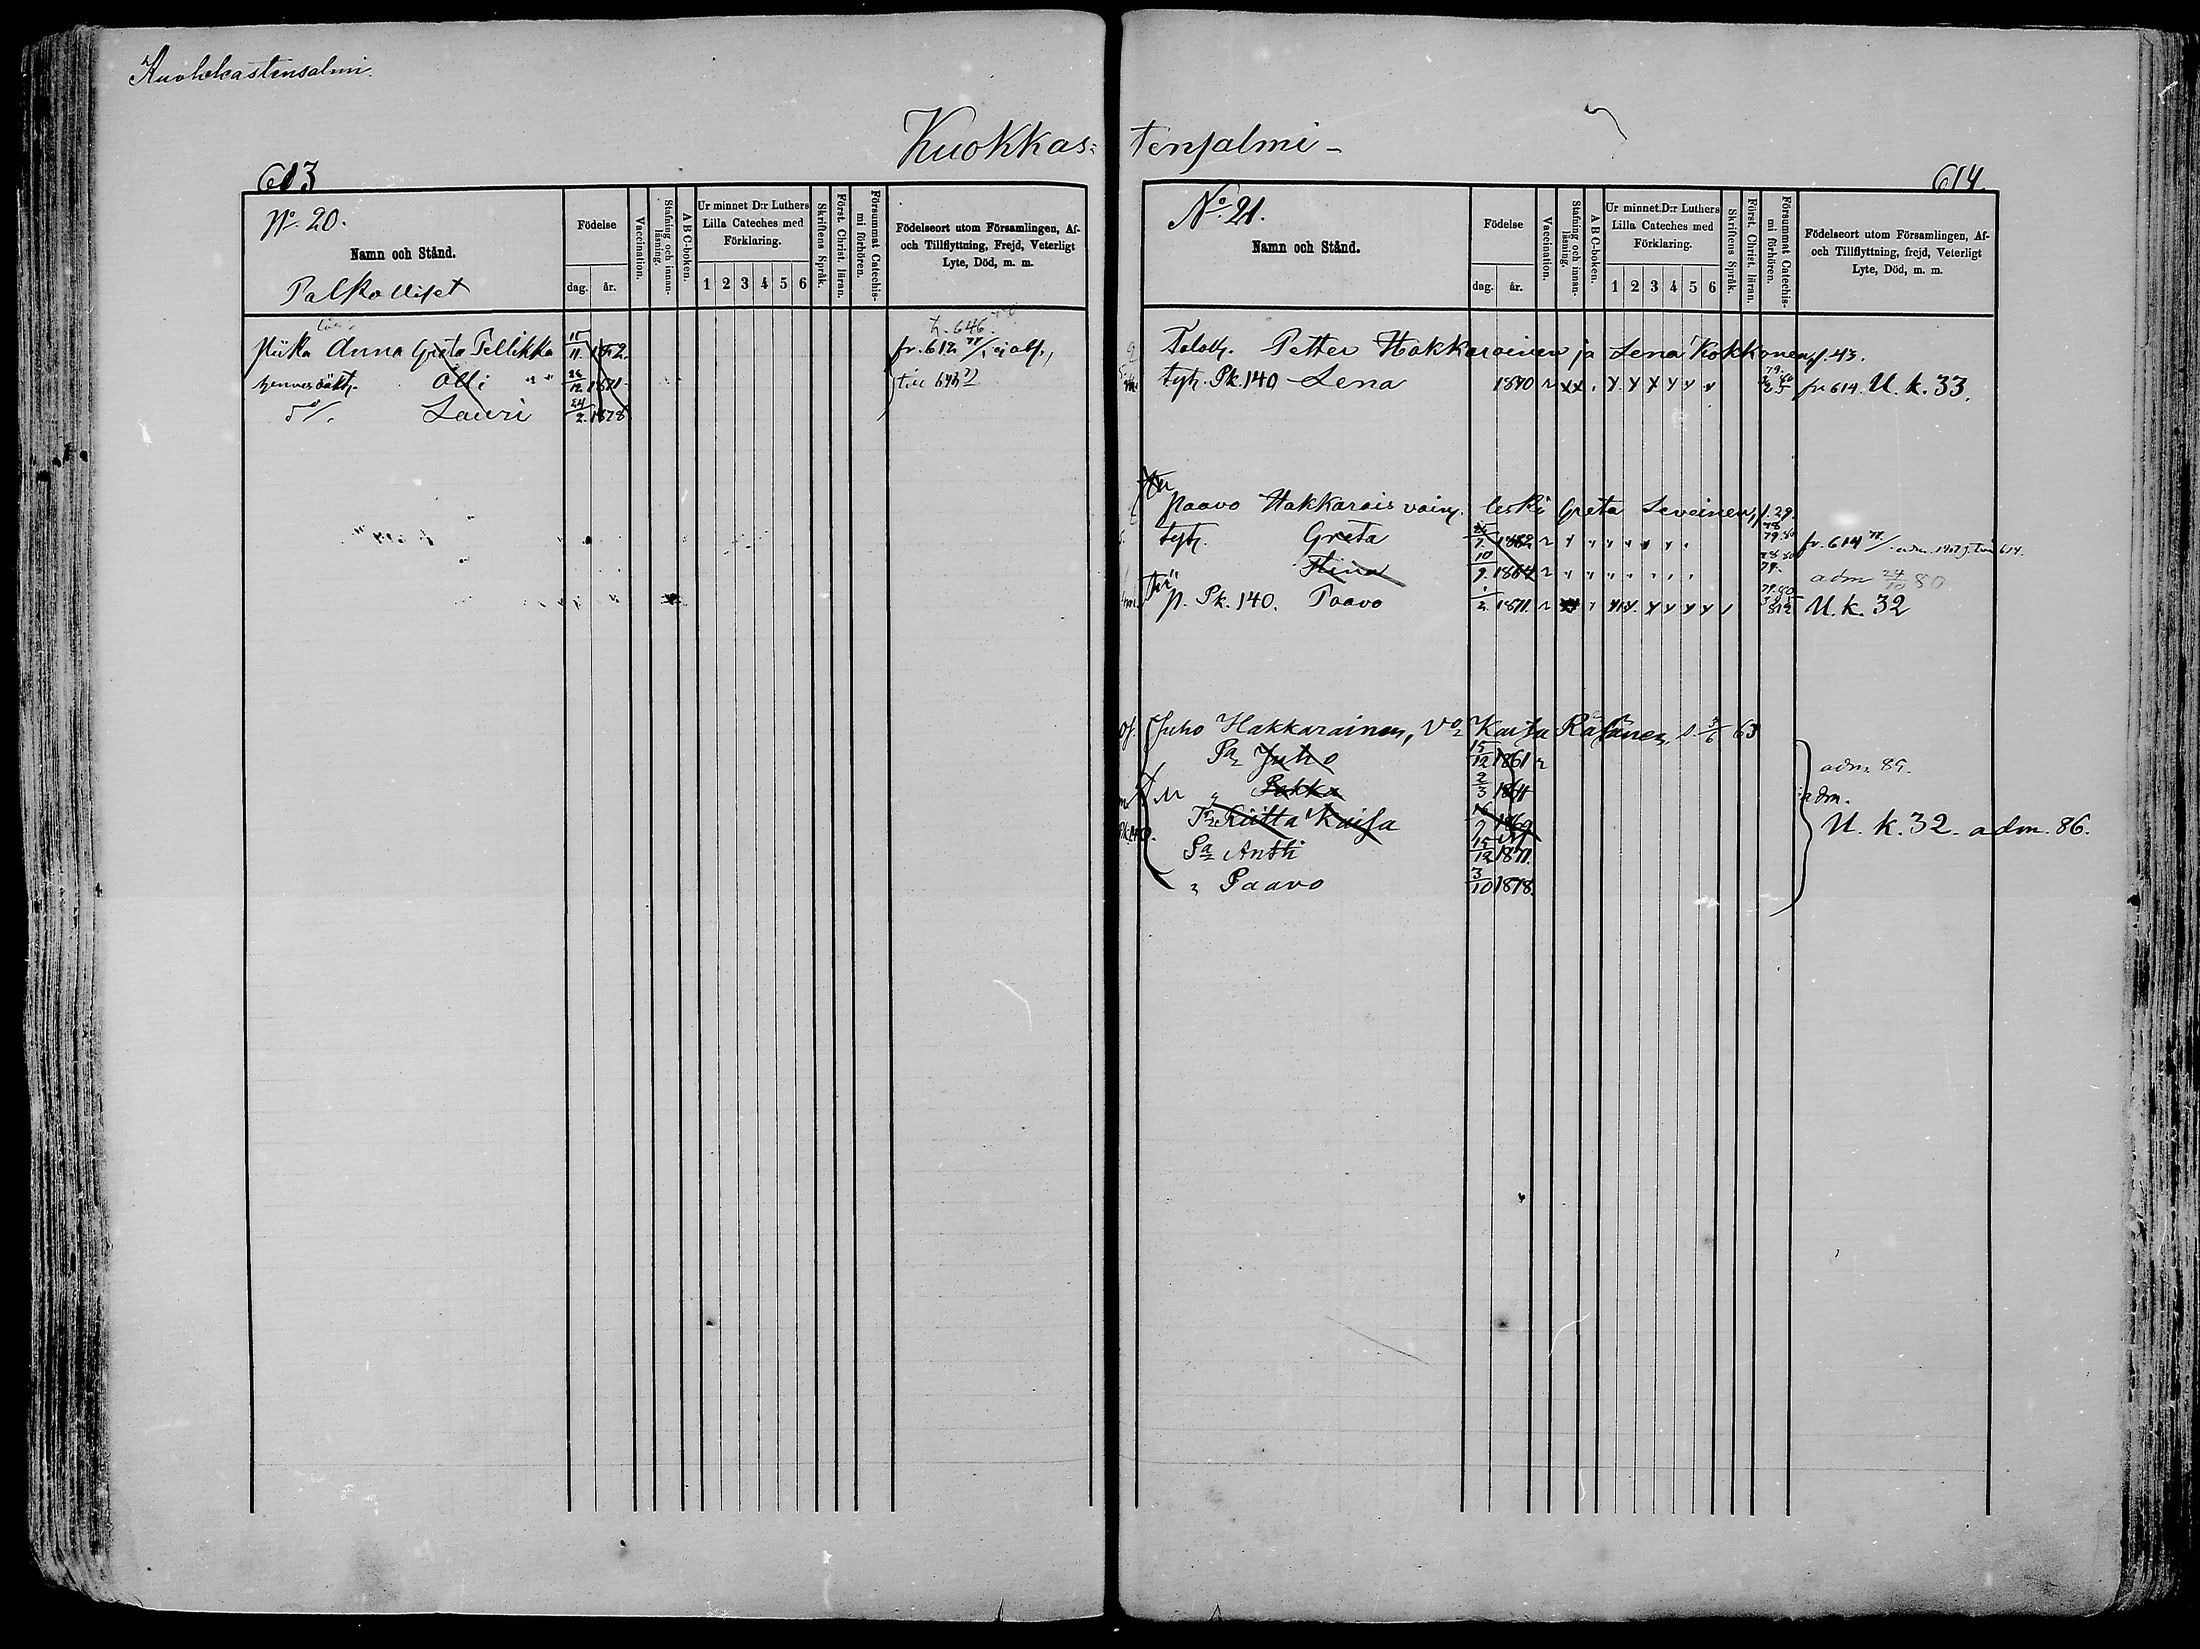 Kuokkastensalmi.
Kuokkas=
613
No. 20.
Namn och Stånd.
Palkolliset
Födelse
dag. år.
Vaccination.
Stafning och innan-
läsning.
A B C-boken.
Ur minnet D:r Luthers
Lilla Cateches med
Förklaring.
1 2 3 4 5 6
Skriftens Språk.
Först. Christ. läran.
Försummat Catechis-
mi förhören.
Födelseort utom Församlingen, Af-
och Tillflyttning, Frejd, Veterligt
Lyte, Död, m. m.
t. 646.
Piika Anna Greta Pellikka 15/11. 1852. fr. 612
Olli 26/12. 1871
Lauri 24/2. 1878
tensalmi -
614.
No. 21.
Namn och Stånd.
Födelse
dag. år.
Vaccination.
Stafning och innan-
läsning.
A B C-boken.
Ur minnet D:r Luthers
Lilla Cateches med
Förklaring.
1 2 3 4 5 6
Skriftens Språk.
Först. Christ. läran.
Försummat Catechis-
mi förhören.
Födelseort utom Församlingen, Af-
och Tillflyttning, frejd, Veterligt
Lyte, Död, m. m.
Petter Hakkarainen ja Lena Kokkonen, s. 43.
tyt. Pk. 140 Lena 1870 fr. 614. U. k. 33.
Paavo Hakkarais vain. leski Greta Leveinen, s. 29.
tyt. Greta 1862 fr. 614
Stina 10/9. 1864 adm 24/10 80
p. Pk. 140. Paavo 1/2. 1871 U. k. 32
Juho Hakkarainen, Vo Kaisa Räsänen, s. 3/6 63
Pa Juho 15/12 1861 adm. 89.
" Pekka 2/3 1864 adm.
Tr Riitta Kaisa 16/9 1869 U. k. 32. adm. 86.
Pa Antti 15/12 1871.
" Paavo 3/10 1878.